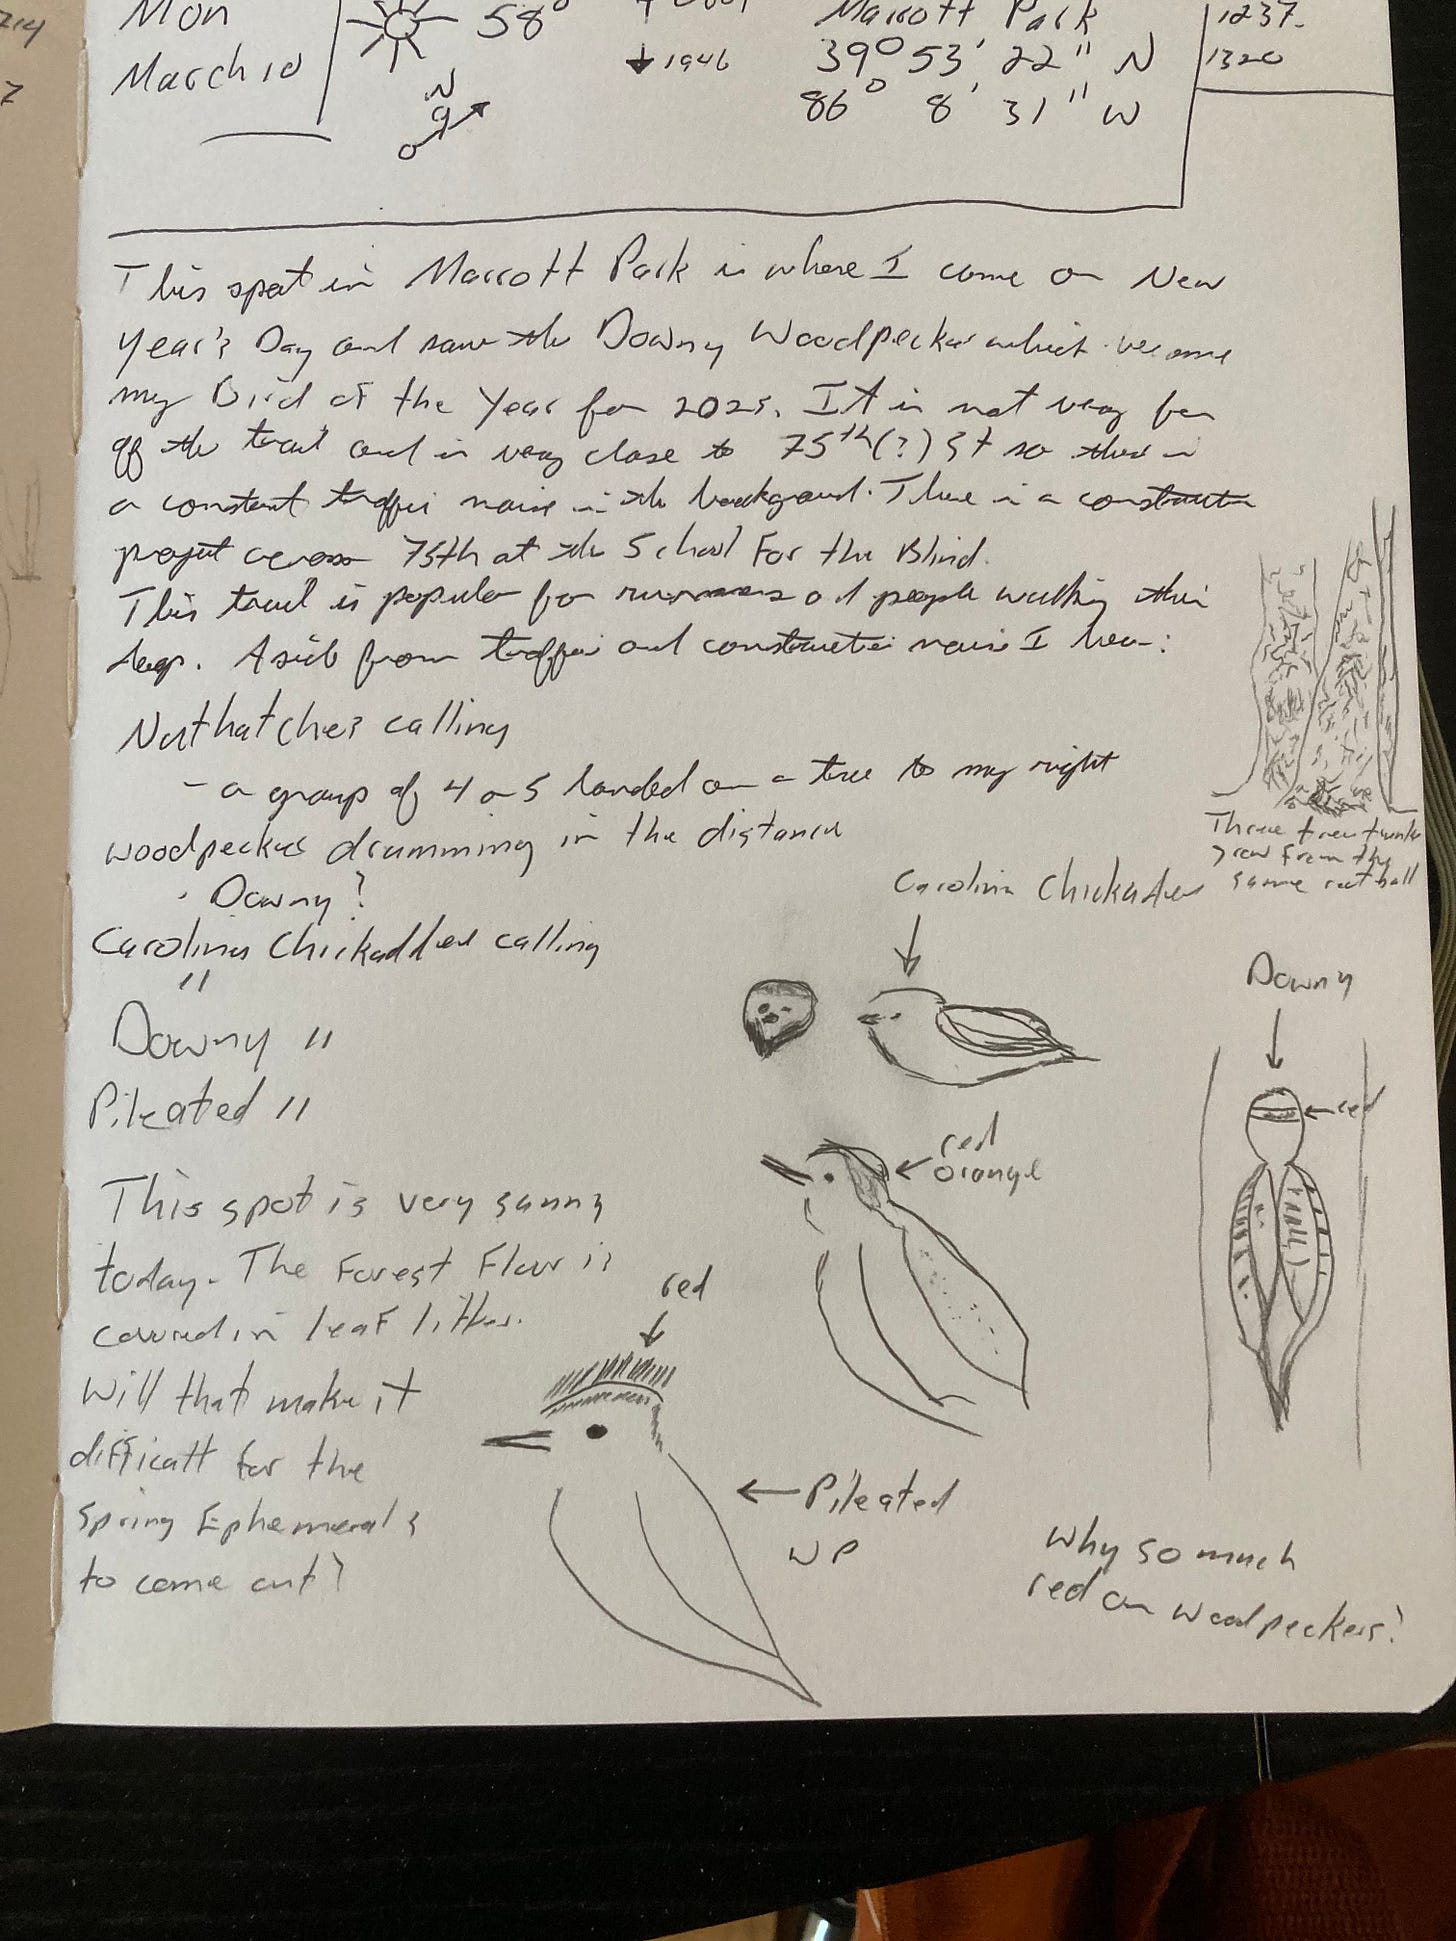 Mon
March 10
58°
↓ 1946
N
9
Marrott Park
39° 53' 22" N
86° 8' 31" W
1237-
1320
This spot in Marrott Park is where I came on New
Year's Day and saw the Downy Woodpecker which became
my Bird of the Year for 2025. It is not very far
off the trail and is very close to 75th (?) St so there is
a constant traffic noise in the background. There is a construction
project across 75th at the School For the Blind.
This trail is popular for runners and people walking their
dogs. Aside from traffic and construction noise I hear:
Nuthatches calling
- a group of 4 or 5 landed on a tree to my right
woodpecker drumming in the distance
· Downy?
Carolina Chickadees calling
"
Downy "
Pileated "
Three tree trunks
grew from the
same root ball
Carolina Chickadee
Downy
red
red
orange
This spot is very sunny
today. The Forest Floor is
covered in leaf litter.
Will that make it
difficult for the
Spring Ephemerals
to come out?
red
← Pileated
WP
Why so much
red on woodpeckers?